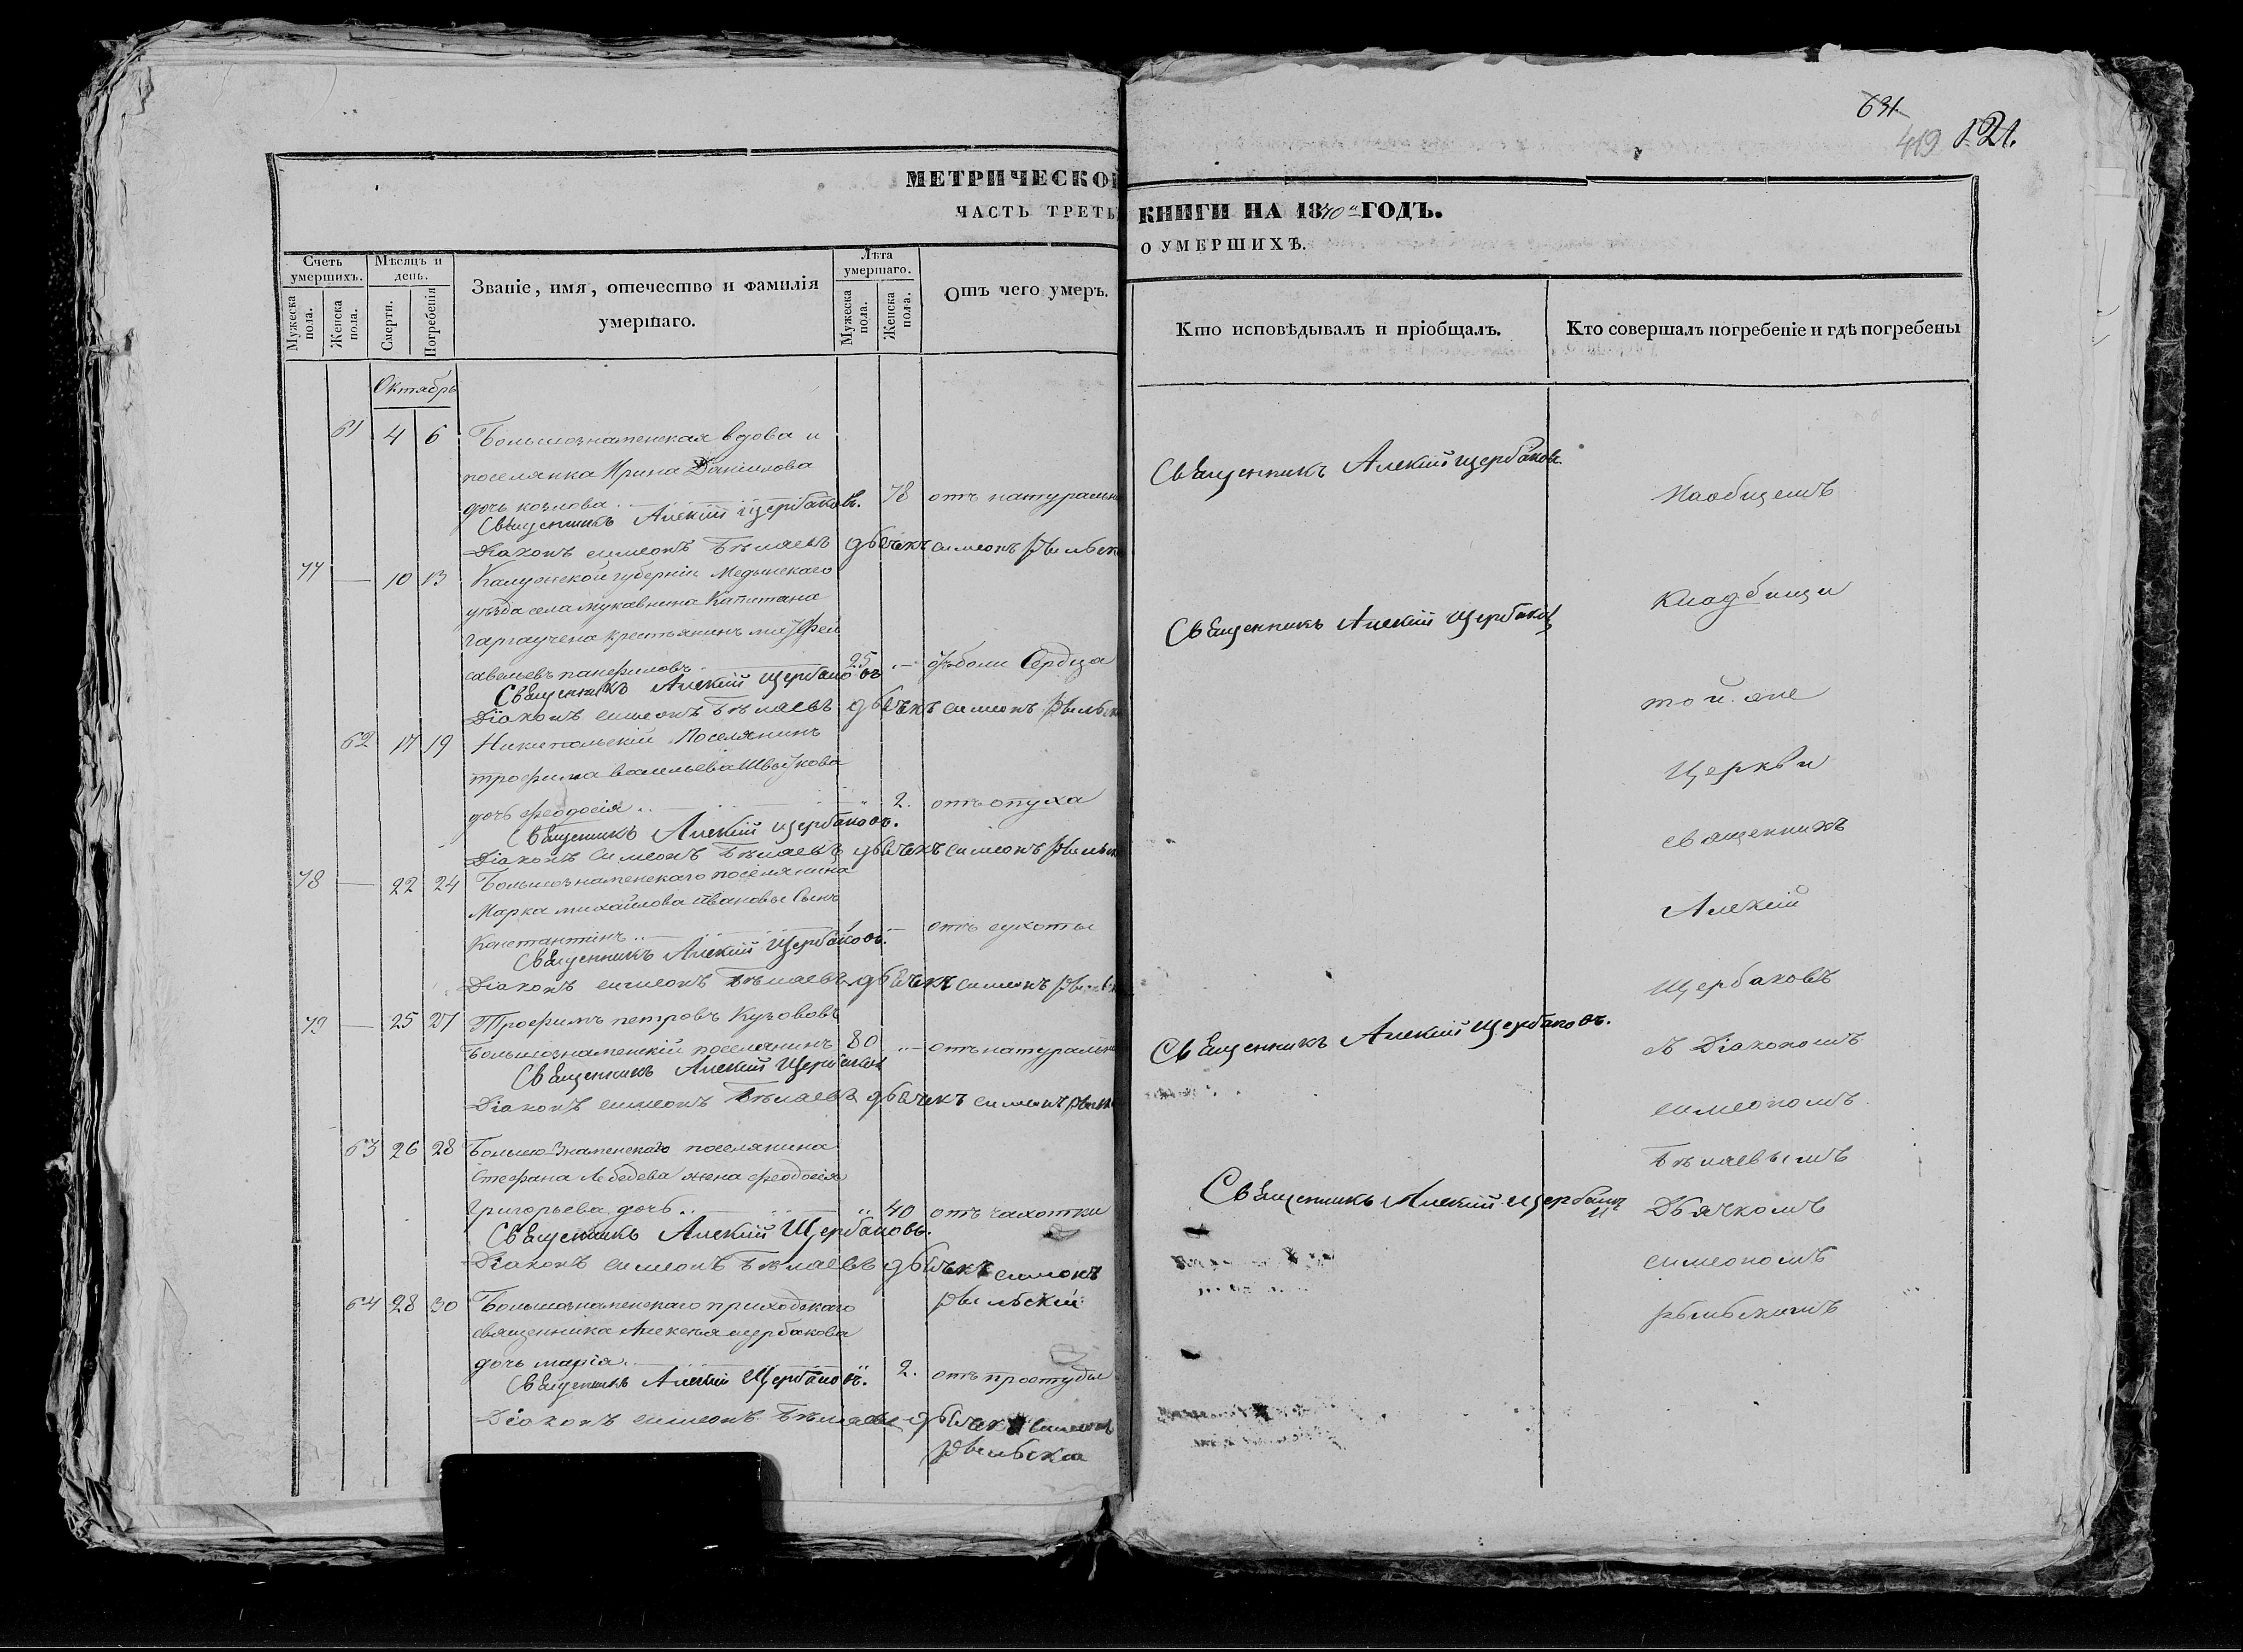 631
419 121.
МЕТРИЧЕСКОЙ КНИГИ НА 1840й ГОДЪ.
ЧАСТЬ ТРЕТЬ О УМЕРШИХЪ.
Счетъ умершихъ.
Мужеска пола.
Женска пола.
Мѣсяцъ и день.
Смерти.
Погребенія
Званіе, имя, отечество и фамилія умершаго.
Лѣта умершаго.
Мужеска пола.
Женска пола.
Отъ чего умеръ.
Кто исповѣдывалъ и пріобщалъ.
Кто совершалъ погребеніе и гдѣ погребены
Октябрь
61 4 6 Большознаменская вдова и
поселянка Ирина Даніилова
дочь козлова. 78 отъ натуральн
Священникъ Алексій Щербаковъ.
Діаконъ симеонъ Бѣляевъ дьячекъ симеонъ Рыльск
77 — 10 13 Калужской губерніи Медынскаго
уѣзда села мукавнина Капитана
крестьянинъ
савельевъ панфиловъ. 25 — боли Сердца
Священникъ Алексій Щербаковъ
Діаконъ симеонъ Бѣляевъ дьячекъ симеонъ Рыльск
62 17 19 Никипольскій Поселянинъ
трофима васильева
дочь феодосія 2. отъ опуха
Священникъ Алексій Щербаковъ.
Діаконъ Симеонъ Бѣляевъ дьячекъ симеонъ Рыльск
78 — 22 24 Большознаменскаго поселянина
Марка михайлова Ивановы Сынъ
Константинъ 1 — отъ сухоты
Священникъ Алексій Щербаковъ.
Діаконъ симеонъ Бѣляевъ дьячекъ симеонъ Рыльск
79 — 25 27 Трофимъ петровъ
Большознаменскій поселянинъ 80 — отъ натуральн
Священникъ Алексій Щербаковъ
Діаконъ симеонъ Бѣляевъ дьячекъ симеонъ Рыльск
63 26 28 Большо-Знаменскаго поселянина
Стефана Лебедева жена феодосія
Григорьева дочь 40 отъ чахотки
Священникъ Алексій Щербаковъ.
Діаконъ симеонъ Бѣляевъ дьячекъ симеонъ
Рыльскій
64 28 30 Большознаменскаго приходскаго
священника Алексѣя щербакова
дочь марія 2. отъ простуды
Священникъ Алексій Щербаковъ.
Діаконъ симеонъ Бѣляевъ дьячекъ симеонъ
Рыльскій
Священникъ Алексій щербаковъ.
Священникъ Алексій Щербаковъ
Священникъ Алексій Щербаковъ.
Священникъ Алексій Щербаковъ
На общемъ
Кладбищи
той же
Церкви
священникъ
Алексій
Щербаковъ
съ Діакономъ
симеономъ
Бѣляевымъ
и Дьячкомъ
симеономъ
рыльскимъ